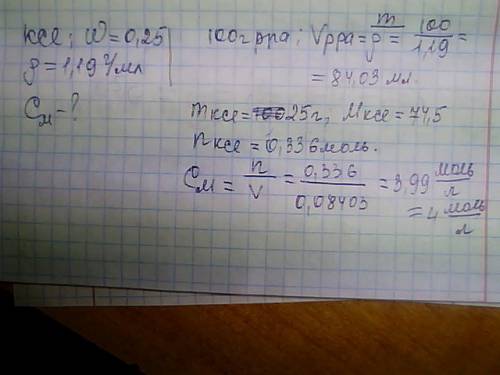 KCe; ω=0,25
ρ=1,19 г/мл
См-?
100г рра; Vрра= m/ρ = 100/1,19 =
= 84,03 мл.
mKCe= 25г, МKCe=74,5
nKCe = 0,336моль.
См = n/V = 0,336/0,08403 = 3,99 моль/л
= 4 моль/л